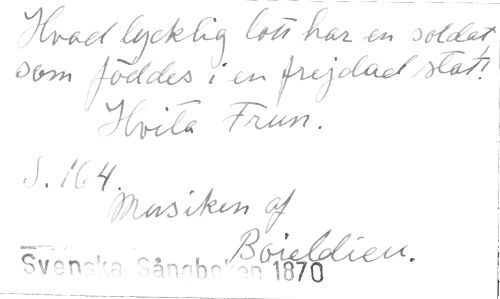 Hvad lycklig lott har en soldat,
som föddes i en frejdad stat!
Hvita Frun.
S. 164.
Musiken af
Boieldieu.
Svenska Sångboken 1870